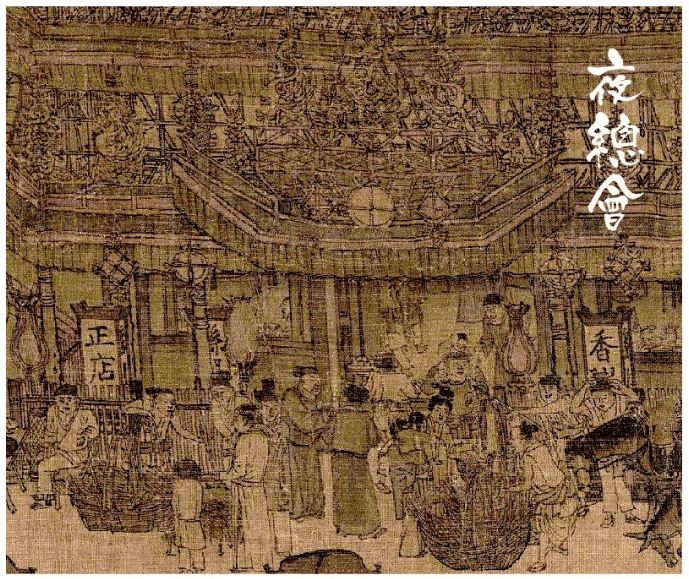 夜總會
正店
孫
香